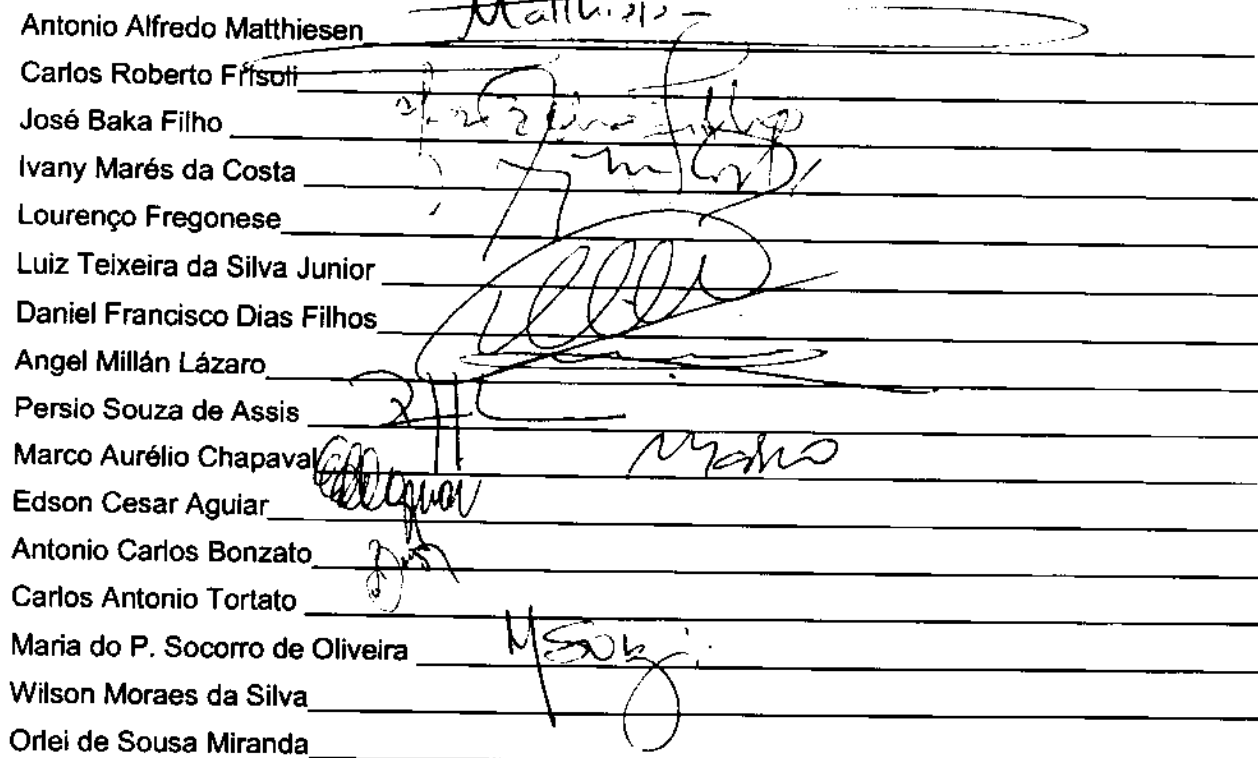 Antonio Alfredo Matthiesen Matthiesen
Carlos Roberto Frisoli
José Baka Filho
Ivany Marés da Costa
Lourenço Fregonese
Luiz Teixeira da Silva Junior
Daniel Francisco Dias Filhos
Angel Millán Lázaro
Persio Souza de Assis
Marco Aurélio Chapaval
Edson Cesar Aguiar
Antonio Carlos Bonzato
Carlos Antonio Tortato
Maria do P. Socorro de Oliveira
Wilson Moraes da Silva
Orlei de Sousa Miranda